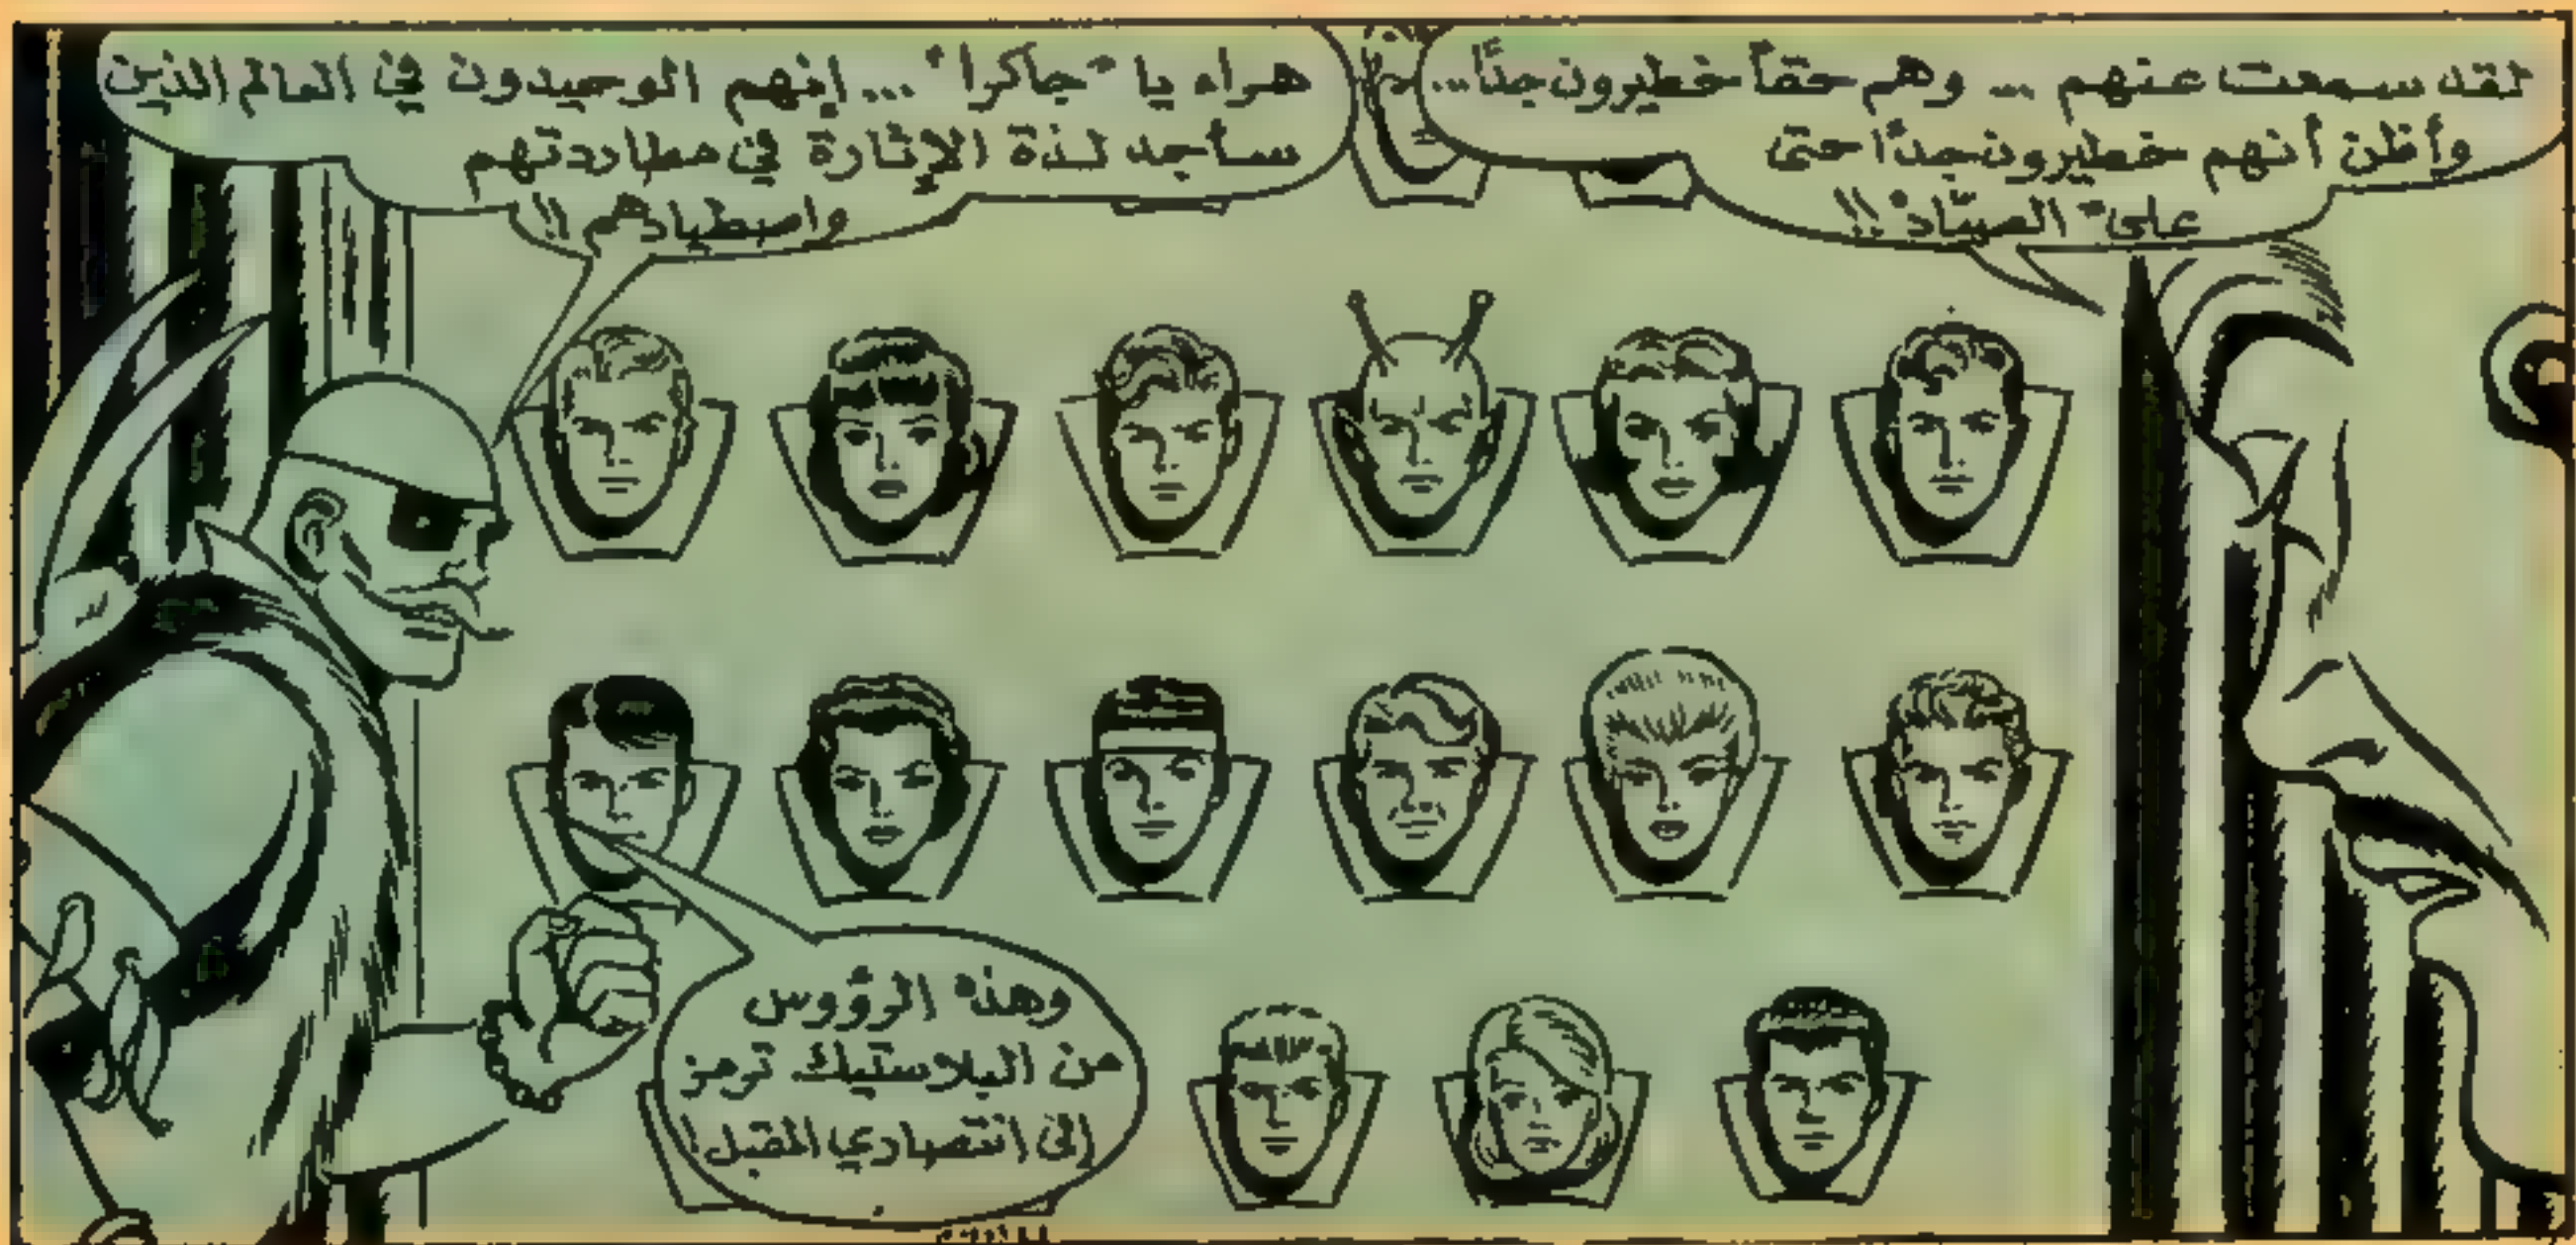 لقد سمعت عنهم ... وهم حقاً خطيرون جداً...
وأظن أنهم خطيرون جداً حتى
على "الصيّاد" !!
هراء يا "جاكرا" ... إنهم الوحيدون في العالم الذين
سأجد لذة الإثارة في مطاردتهم
واصطيادهم !!
وهذه الرؤوس
من البلاستيك ترمز
إلى انتصاري المقبل!